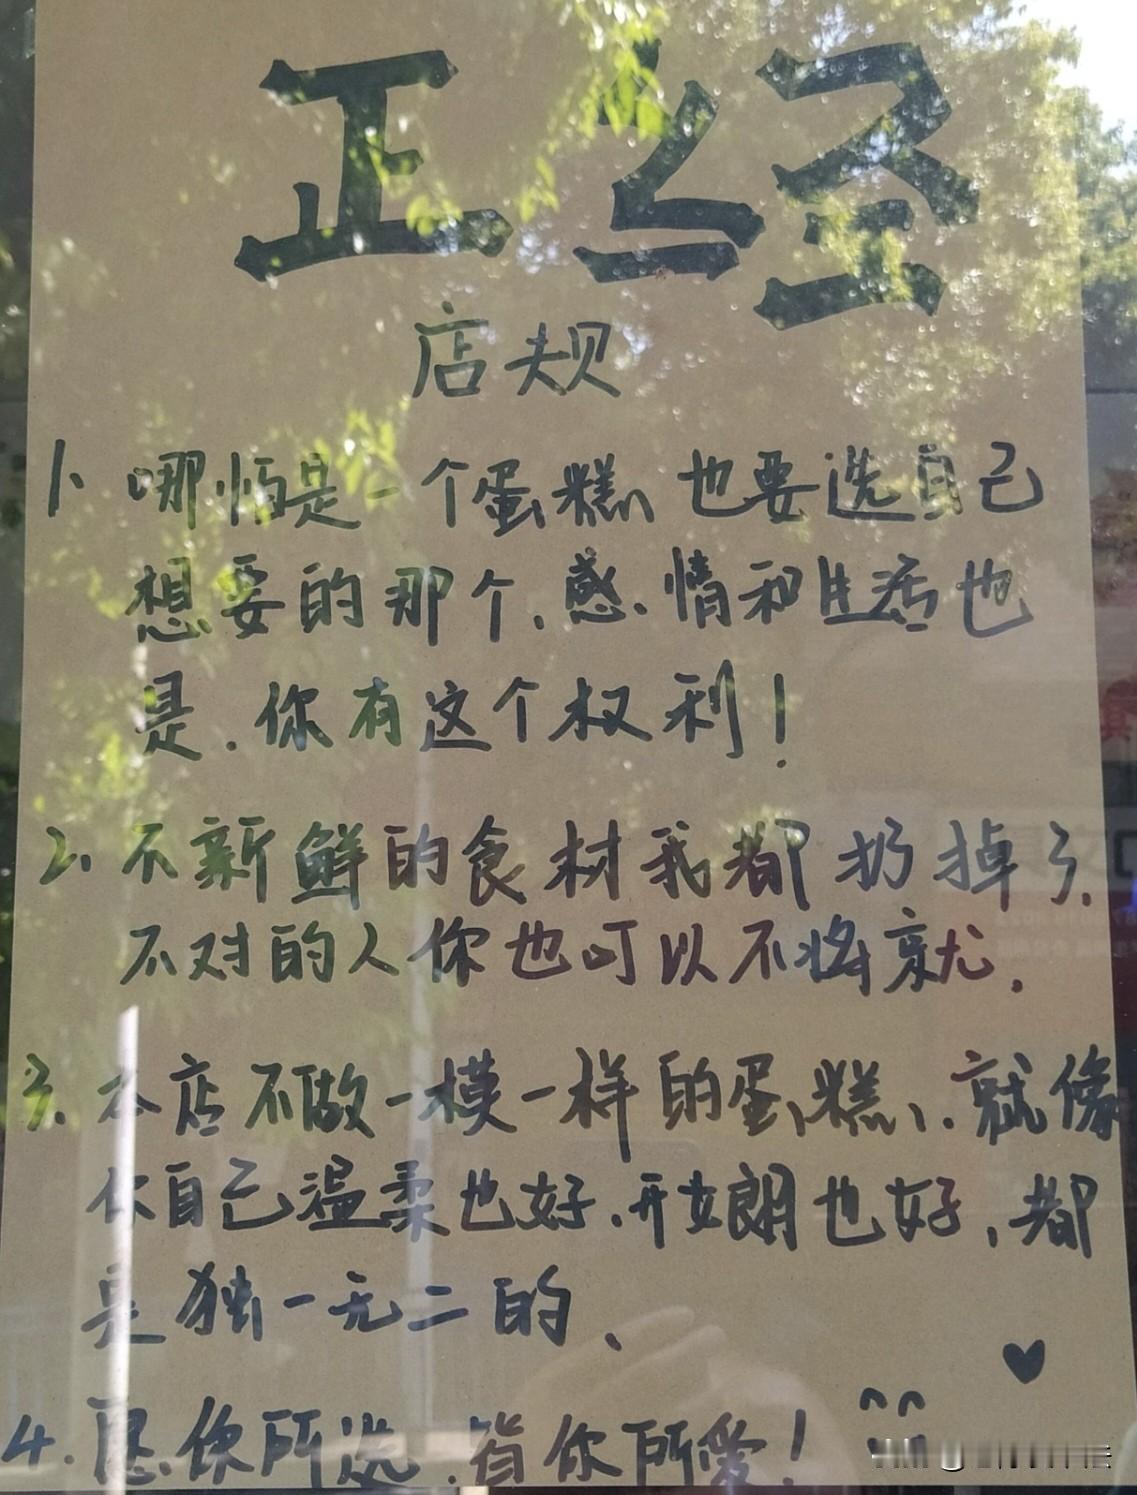 正经
店规
1、哪怕是一个蛋糕、也要选自己
想要的那个.感.情和生活也
是.你有这个权利!
2.不新鲜的食材我都扔掉了.
不对的人你也可以不将就.
3.本店不做一模一样的蛋糕、.就像
你自己温柔也好.开女朗也好,都
是独一无二的、
4.愿你所选.皆你所爱!